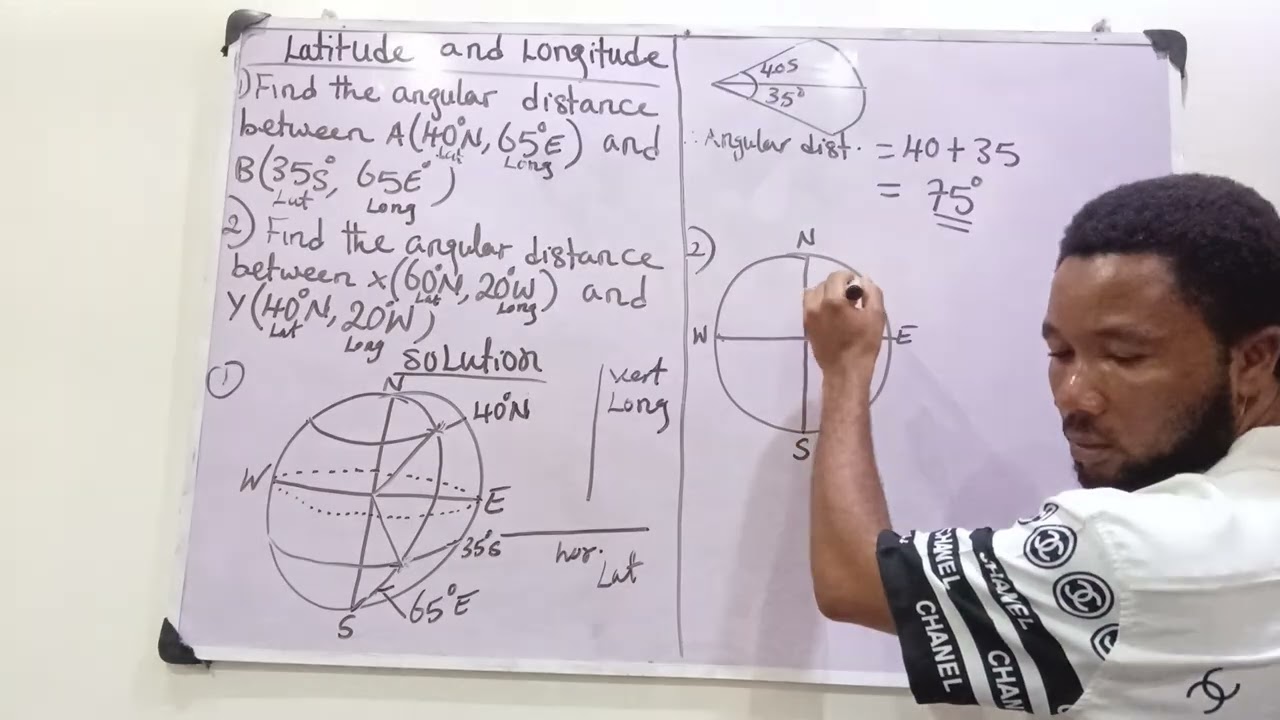 Latitude and Longitude
1) Find the angular distance
between A(40°N, 65°E) and
Lat Long
B(35S°, 65E°)
Lat Long
2) Find the angular distance
between X(60°N, 20°W) and
Lat Long
Y(40°N, 20°W)
Lat Long
SOLUTION
①
N
40°N
W
E
35°S
65°E
S
vert
Long
hor.
Lat
40S
35°
∴ Angular dist. = 40 + 35
= 75°
2)
N
W
E
S
CHANNEL
CHANNEL
CHANNEL
CHAN